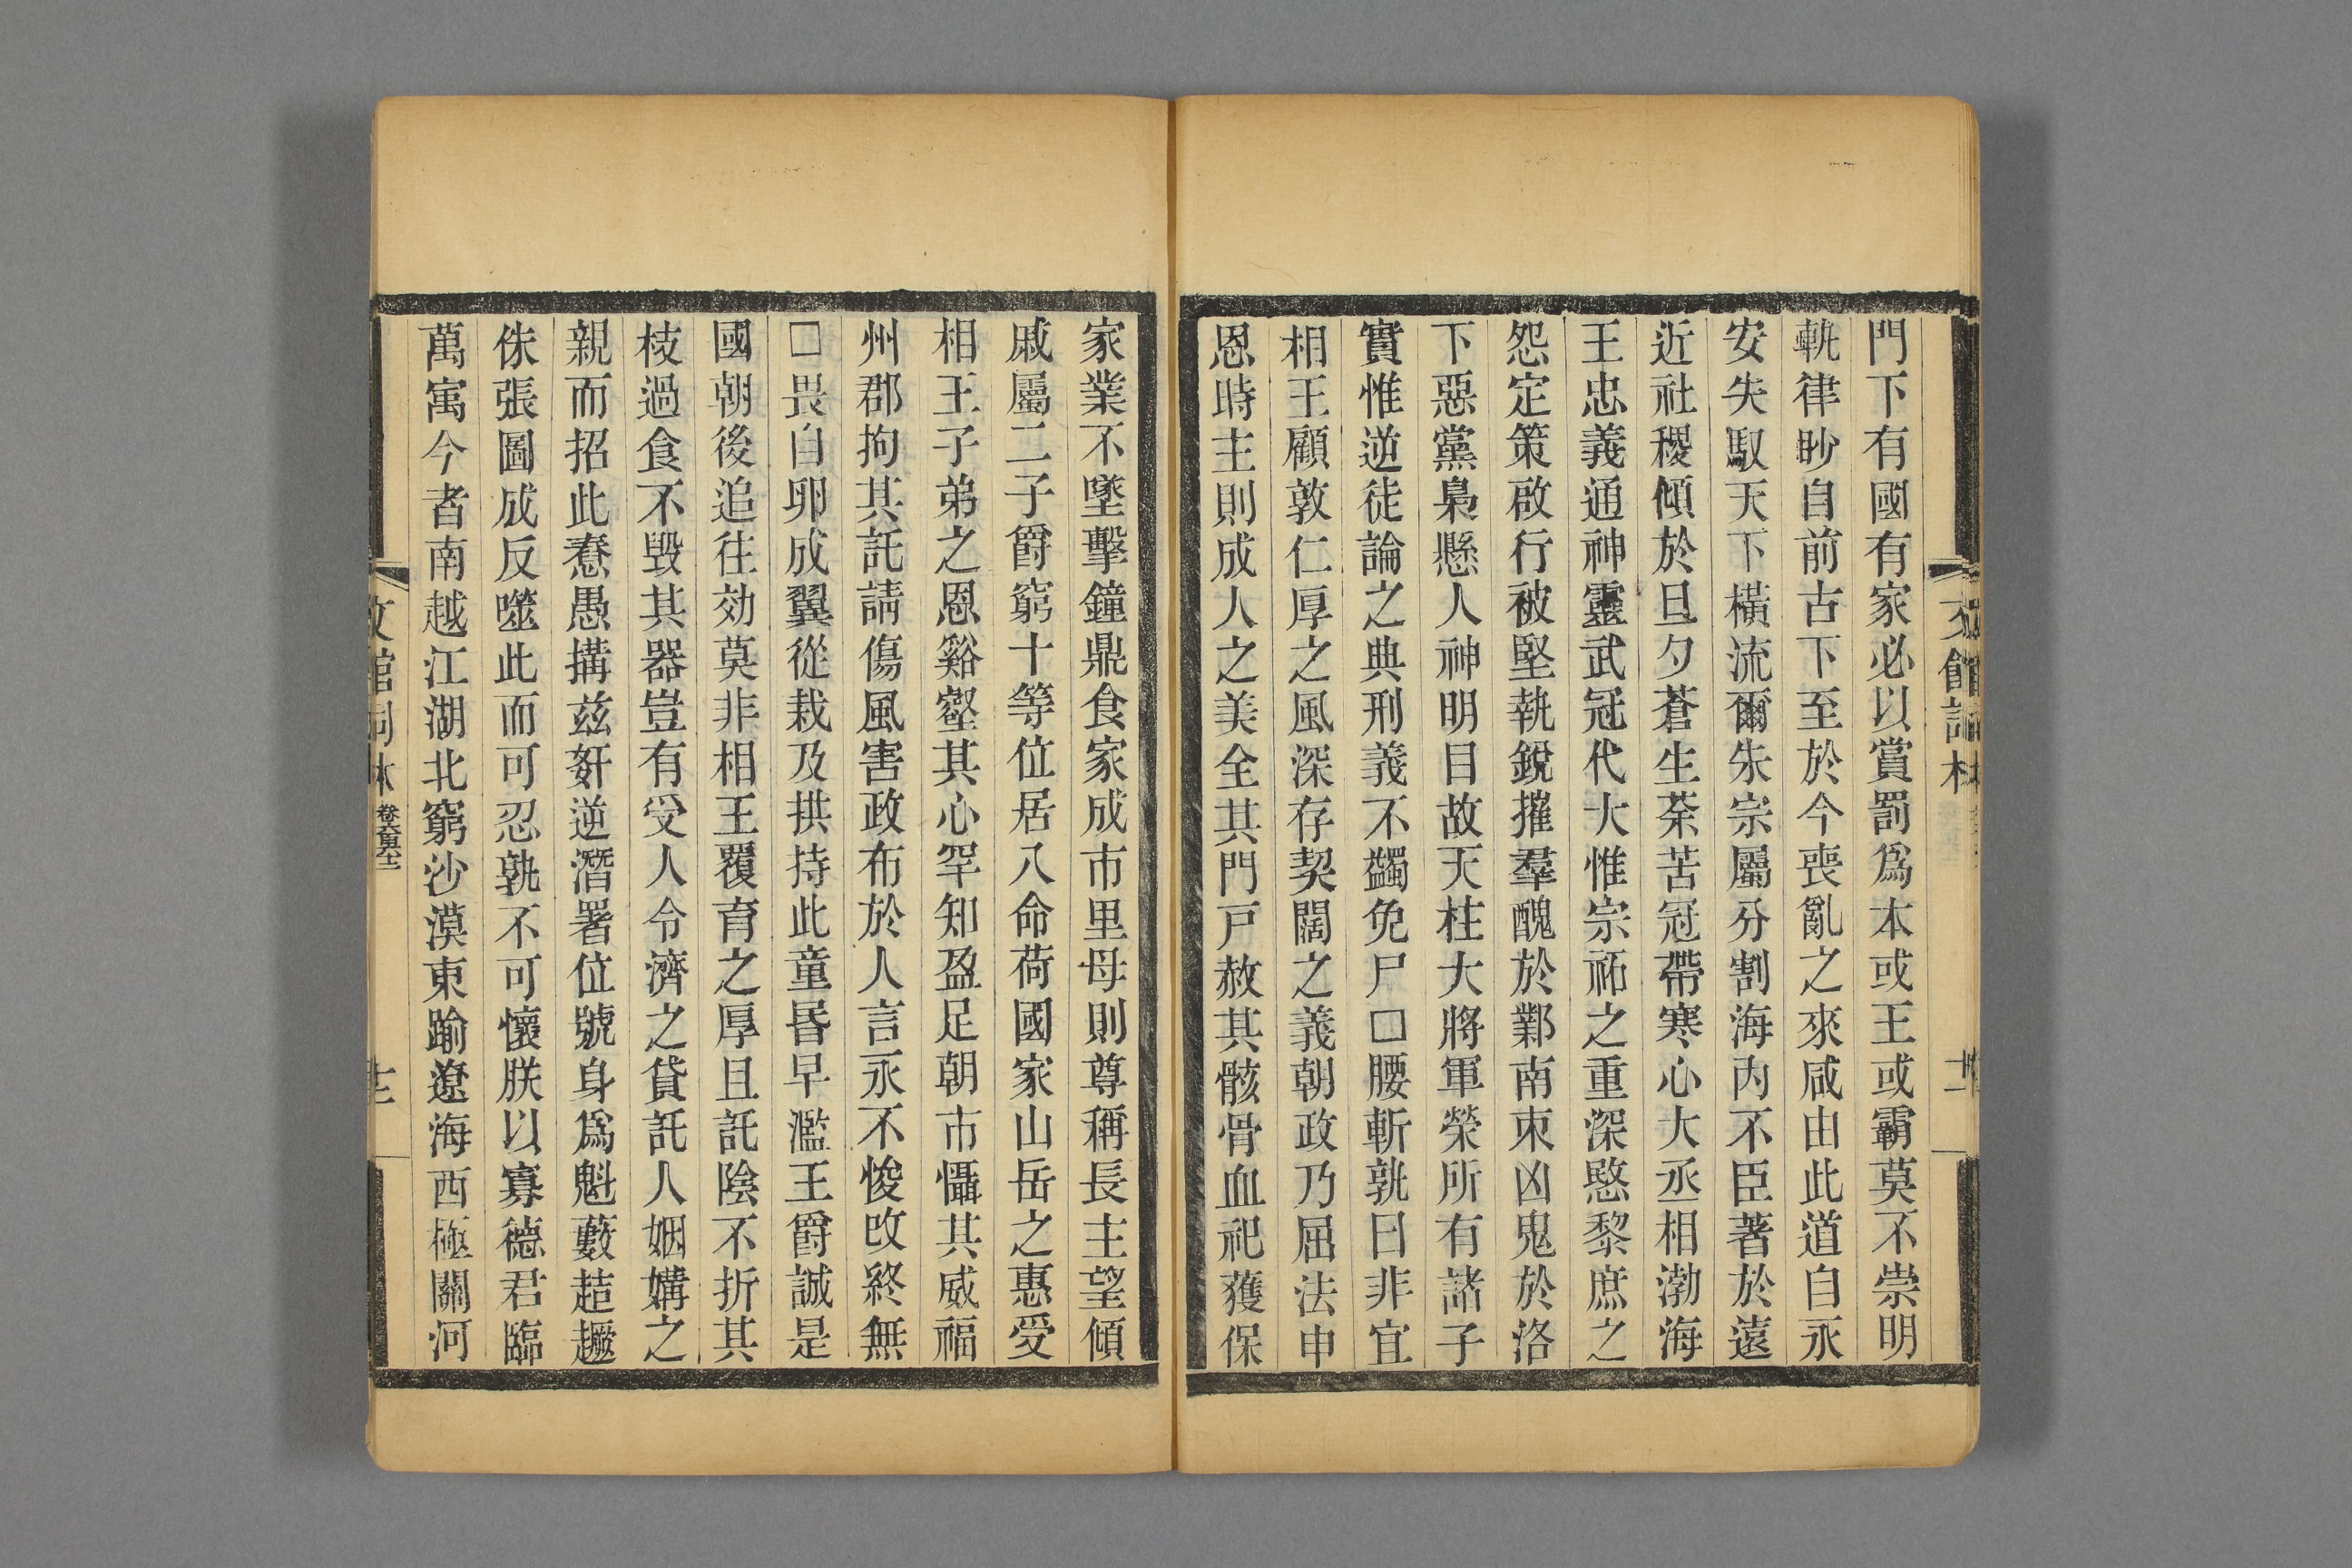 門下有國有家必以賞罰爲本或王或霸莫不崇明
軌律眇自前古下至於今喪亂之來咸由此道自永
安失馭天下橫流爾朱宗屬分割海內不臣著於遠
近社稷傾於旦夕蒼生荼苦冠帶寒心大丞相渤海
王忠義通神靈武冠代大惟宗祏之重深愍黎庶之
怨定策啟行被堅執銳摧羣醜於鄴南束凶鬼於洛
下惡黨梟懸人神明目故天柱大將軍榮所有諸子
實惟逆徒論之典刑義不蠲免尸□腰斬孰曰非宜
相王顧敦仁厚之風深存契闊之義朝政乃屈法申
恩時主則成人之美全其門戸赦其骸骨血祀獲保
家業不墜擊鐘鼎食家成市里母則尊稱長主望傾
戚屬二子爵窮十等位居八命荷國家山岳之惠受
相王子弟之恩谿壑其心罕知盈足朝市懾其威福
州郡拘其託請傷風害政布於人言永不悛改終無
□畏自卵成翼從栽及拱持此童昬早濫王爵誠是
國朝後追往効莫非相王覆育之厚且託陰不折其
枝過食不毀其器豈有受人令濟之貸託人姻媾之
親而招此惷愚搆兹姧逆潛署位號身爲魁藪趌趰
侏張圖成反噬此而可忍孰不可懷朕以寡德君臨
萬㝢今者南越江湖北窮沙漠東踰遼海西極關河
文館詞林
卷六百六十二
十二
文館詞林
十一